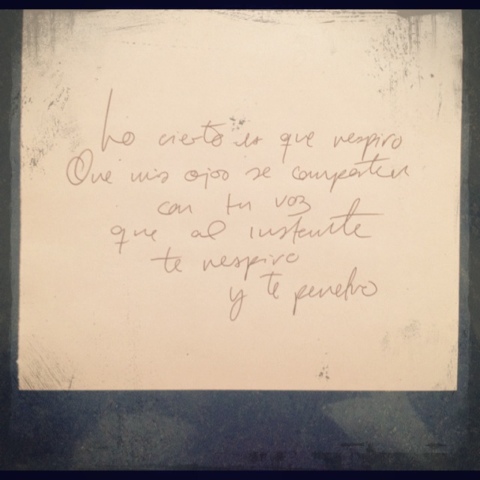 Lo cierto es que respiro
Que mis ojos se comparten
con tu voz
que al instante
te respiro
y te penetro